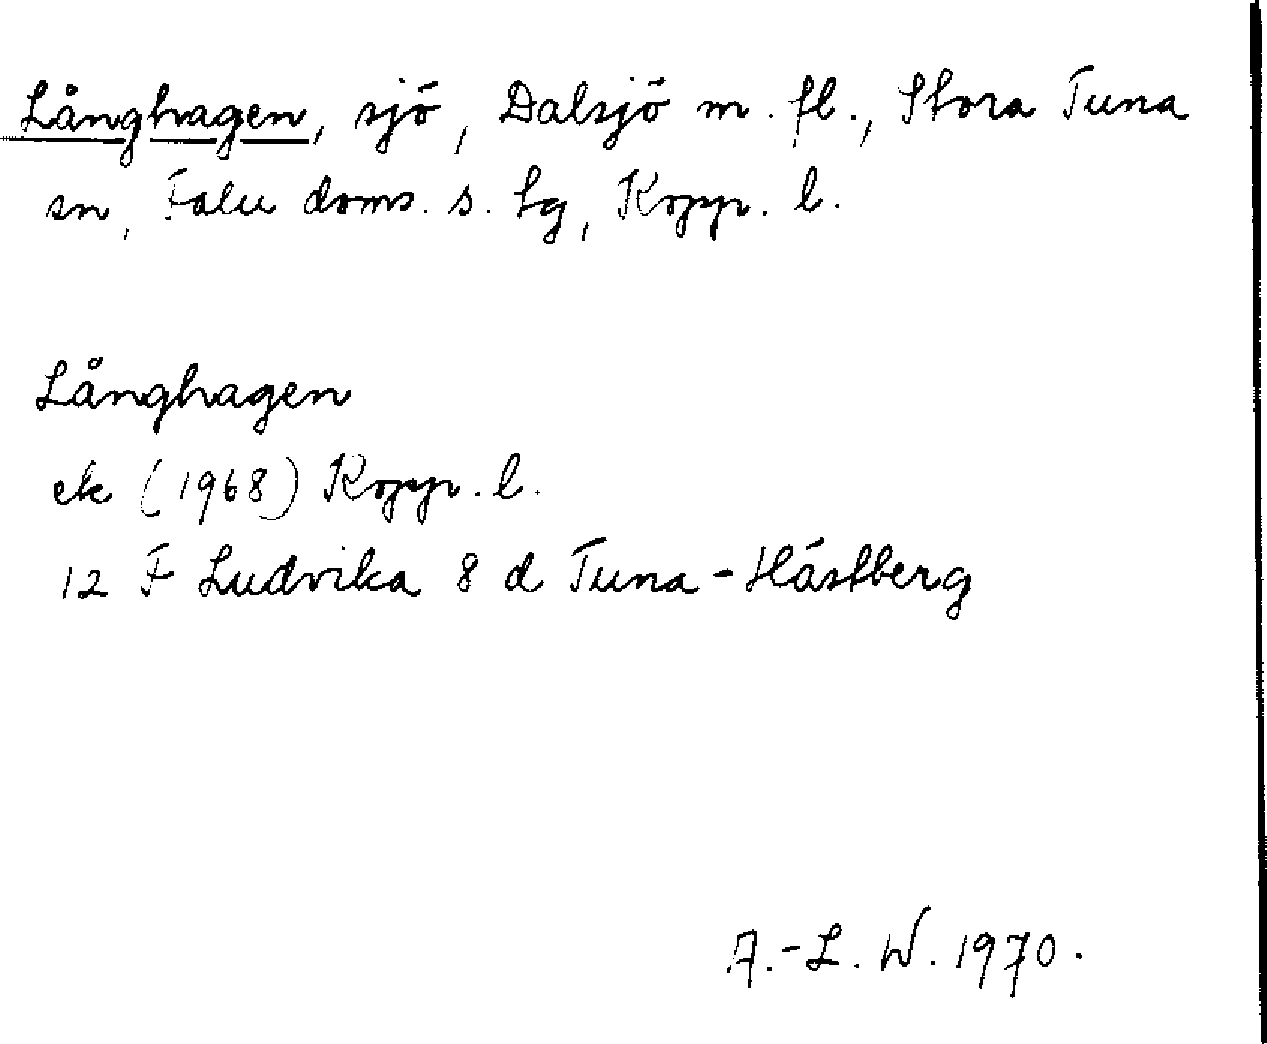 Långhagen, sjö, Dalsjö m. fl., Stora Tuna
sn, Falu doms. s. tg, Kopp. l.
Långhagen
ek (1968) Kopp. l.
12 F Ludvika 8 d Tuna-Hästberg
A.-L. W. 1970.